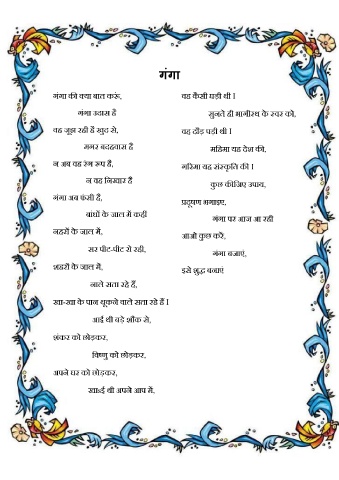 गंगा
गंगा की क्या बात करूं,
गंगा उदास है
वह जुझ रही है खुद से,
मगर बदहवास है
न अब वह रंग रूप है,
न वह निखार है
गंगा अब फंसी है,
बांधों के जाल में कही
नहरों के जाल में,
सर पीट-पीट रो रही,
शहरों के जाल में,
नाले सता रहे हैं,
खा-खा के पान थूकने वाले सता रहे हैं ।
आई थी बड़े शौक से,
शंकर को छोड़कर,
विष्णु को छोड़कर,
अपने घर को छोड़कर,
खोई थी अपने आप में,
वह कैसी घड़ी थी ।
सुनते ही भागीरथ के स्वर को,
वह दौड़ पड़ी थी ।
महिमा यह देश की,
गरिमा यह संस्कृति की ।
कुछ कीजिए उपाय,
प्रदूषण भगाइए,
गंगा पर आज आ रही
आओ कुछ करें,
गंगा बजाएं,
इसे शुद्ध बनाएं